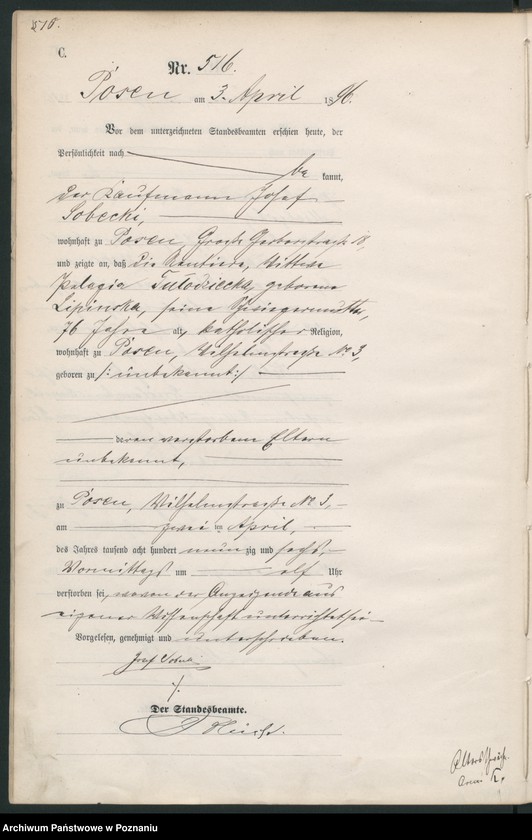 516.
C.
Nr. 516.
Posen am 3. April 1896.
Vor dem unterzeichneten Standesbeamten erschien heute, der
Persönlichkeit nach
be kannt,
der Kaufmann Josef
Sobecki,
wohnhaft zu Posen, Große Gerberstraße
und zeigte an, daß die Rentiere, Wittwe
Pelagia Tułodziecka, geborene
Lipinska, seine Schwiegermutter,
76 Jahre alt, katholischer Religion,
wohnhaft zu Posen, Wilhelmstraße No 3,
geboren zu /: unbekannt :/
deren verstorbene Eltern
unbekannt,
zu Posen, Wilhelmstraße No 3,
am zwei ten April,
des Jahres tausend acht hundert neun zig und sechs,
Vormittags um elf Uhr
verstorben sei, wovon der Anzeigende aus
eigener Wissenschaft unterrichtet sei
Vorgelesen, genehmigt und unterschrieben.
Josef Sobecki
Der Standesbeamte.
Archiwum Państwowe w Poznaniu